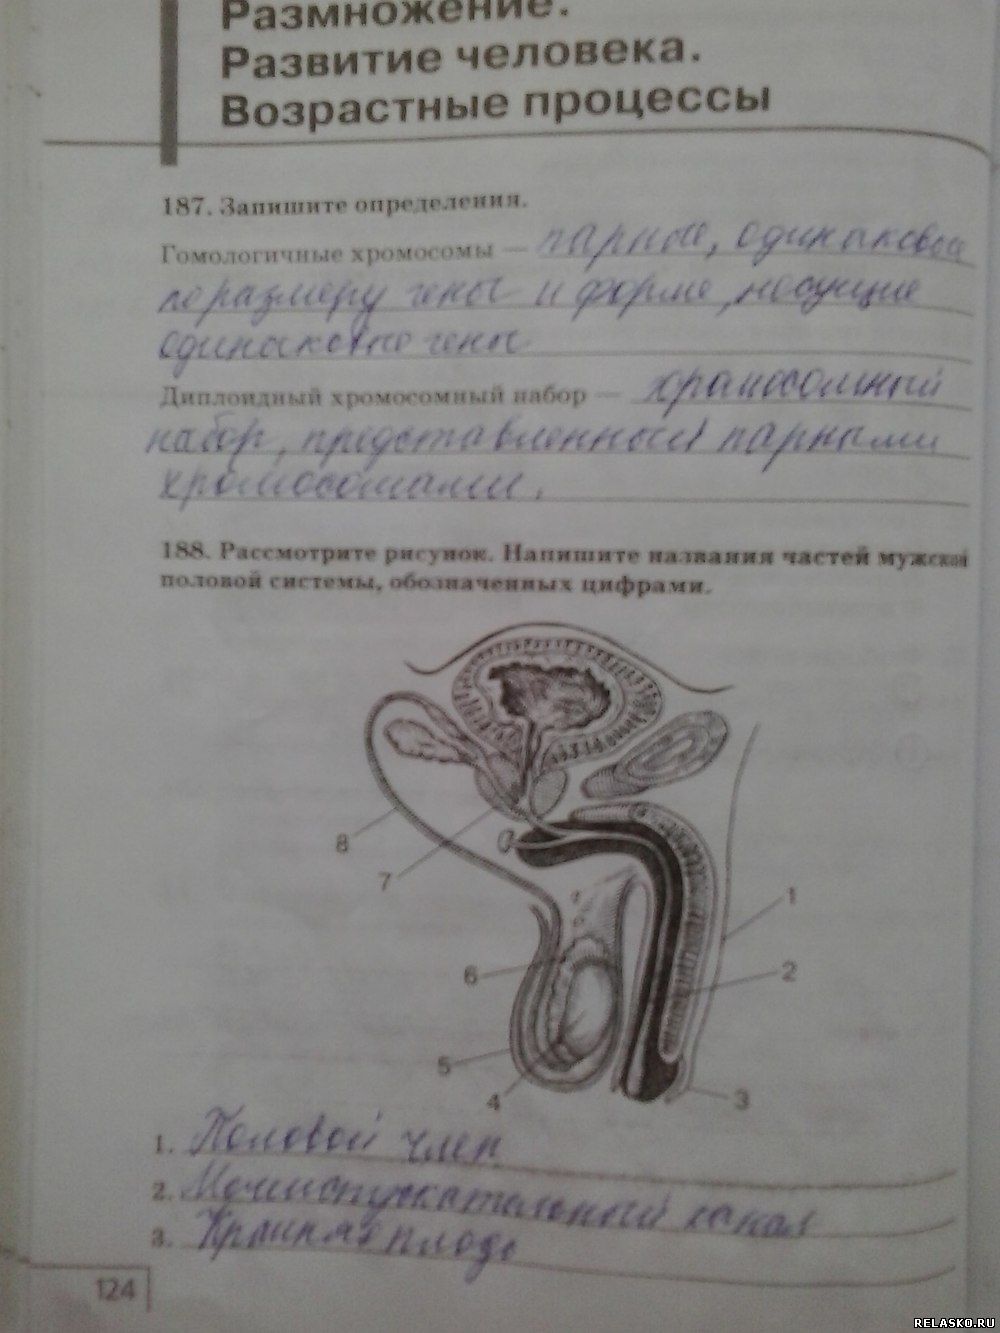 Размножение.
Развитие человека.
Возрастные процессы
187. Запишите определения.
Гомологичные хромосомы — парные, одинаковые
по размеру гены и форме, несущие
одинаковые гены
Диплоидный хромосомный набор — хромосомный
набор, представленный парными
хромосомами.
188. Рассмотрите рисунок. Напишите названия частей мужской
половой системы, обозначенных цифрами.
8
7
1
6
2
5
4
3
1. Половой член
2. Мочиспускательный канал
3. Крайняя плоть
124
RELASKO.RU